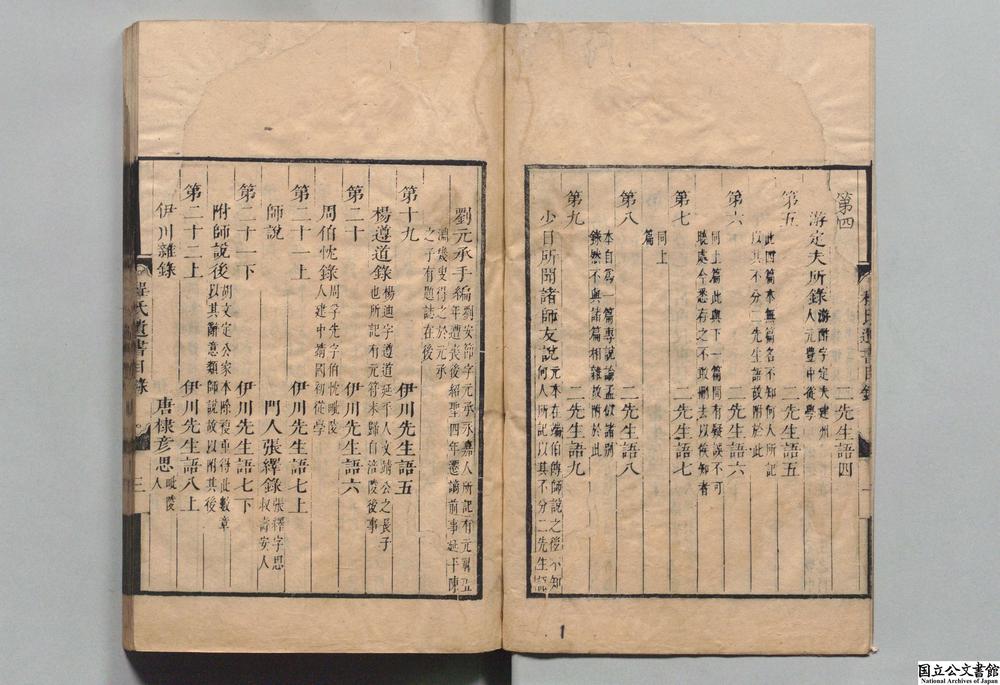 第四 二先生語四
游定夫所錄 游酢字定夫建州人元豐中從學
第五 二先生語五
此四篇本無篇名不知何人所記
以其不分二先生語故附於此
第六 二先生語六
同上篇此與下一篇間有疑誤不可
聽處今悉存之不敢刪去以俟知者
第七 二先生語七
同上
篇
第八 二先生語八
本自爲一篇專說論孟似諸別
錄然不與諸篇相雜故附於此
第九 二先生語九
少日所聞諸師友說 元本在端伯傳師說之後不知何人所記以其不分二先生語
劉元承手編 劉安節字元承永嘉人所記有元祐五年遭喪後紹聖四年遷謫前事延平陳
淵幾叟得之於元承
之子有題誌在後
第十九 伊川先生語五
楊遵道錄 楊迪字遵道延平人文靖公之長子也所記有元符末歸自涪陵後事
第二十 伊川先生語六
周伯忱錄 周孚先字伯忱毗陵人建中靖國初從學
第二十一上 伊川先生語七上
師說 門人張繹錄 張繹字思叔壽安人
第二十一下 伊川先生語七下
附師說後 胡文定公家本除複重得此數章以其辭意類師說故以附其後
第二十二上 伊川先生語八上
伊川雜錄 唐棣彥思 毗陵人
程氏遺書目錄 三
1
国立公文書館
National Archives of Japan